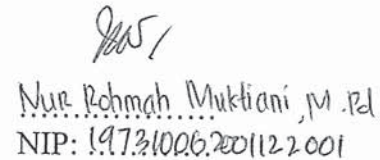 Nur Rohmah Muktiani, M.Pd
NIP: 19731006.2001122001